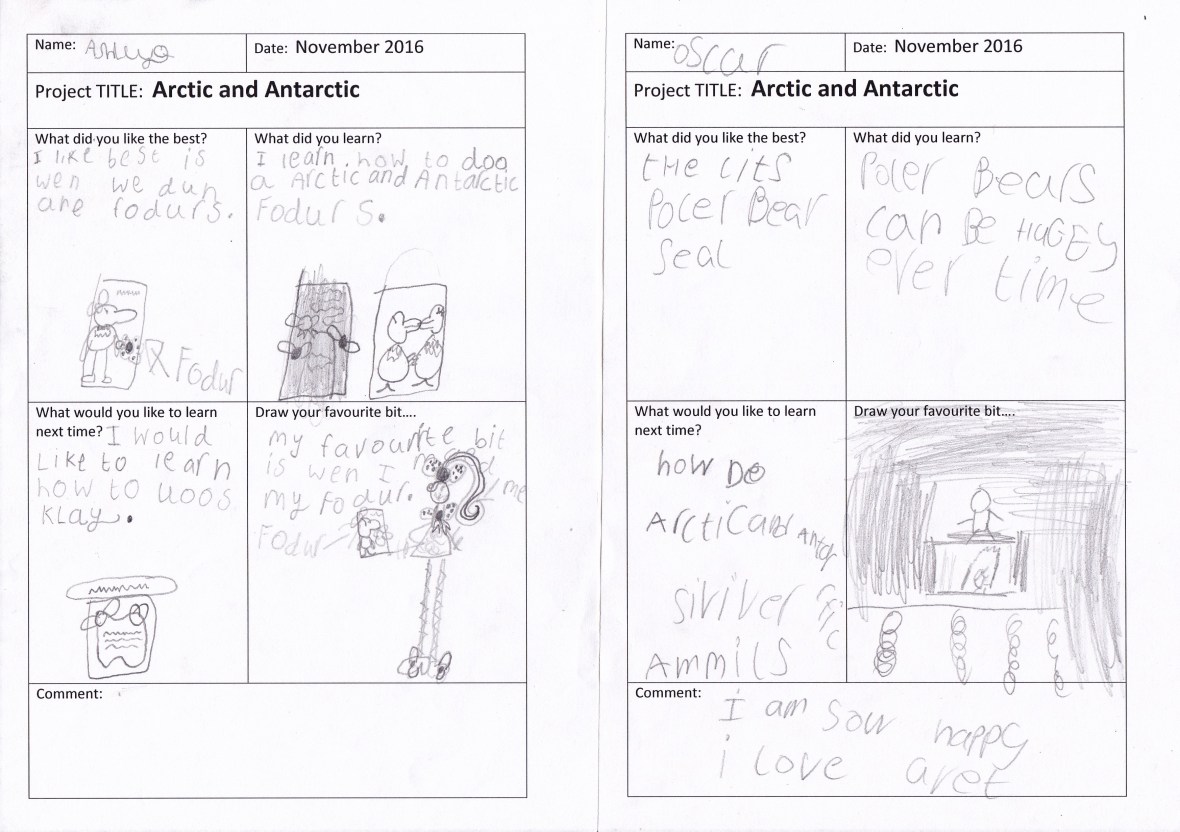 Name:
Date: November 2016
Project TITLE: Arctic and Antarctic
What did you like the best?
I like best is
wen we dun
are fodurs.
Fodur
What did you learn?
I learn how to doo
a Arctic and Antarctic
Fodurs.
What would you like to learn
next time? I would
Like to learn
how to uoos
KLay.
Draw your favourite bit....
my favourite bit
is wen I
my Fodur.
me
Fodur
Comment:
Name: oscar
Date: November 2016
Project TITLE: Arctic and Antarctic
What did you like the best?
tHe
Poler Bear
Seal
What did you learn?
Poler Bears
can Be HUGEy
ever time
What would you like to learn
next time?
how Do
ArcticanD Antar
ctic
siviver
Ammils
Draw your favourite bit....
Comment:
I am Sow happy
i love aret